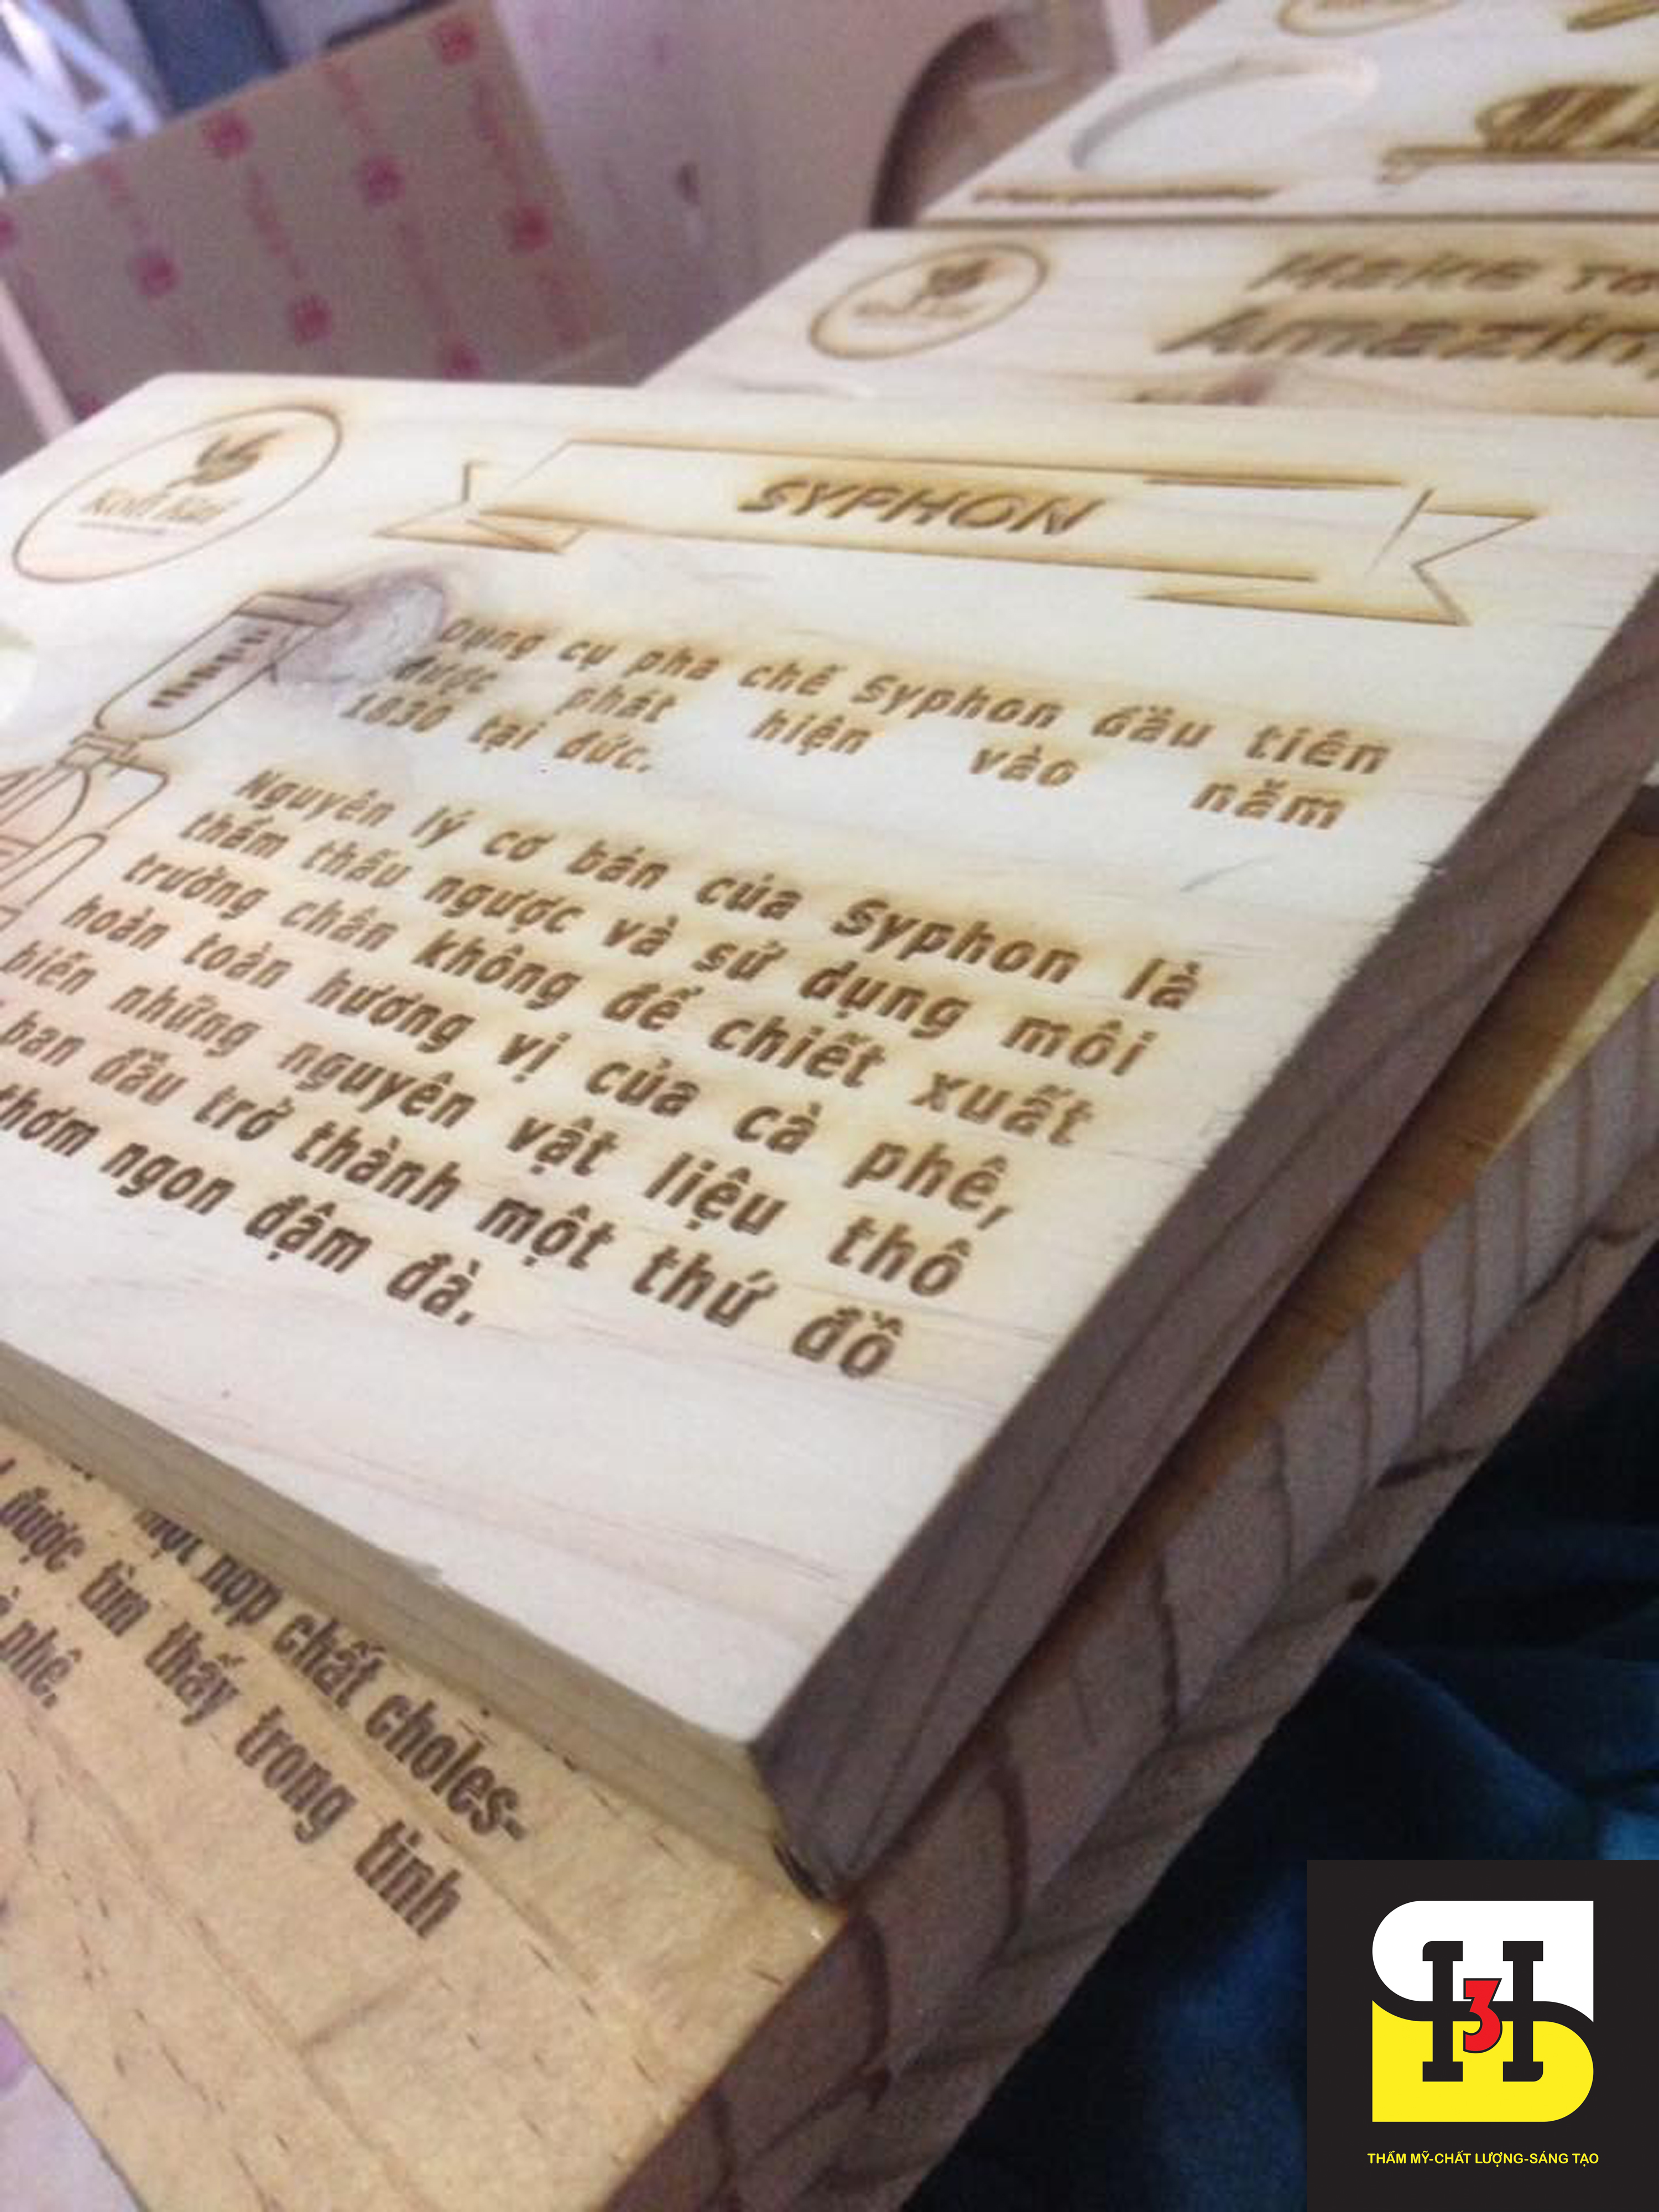 Make
Amazin
Kofi
SYPHON
Dụng cụ pha chế Syphon đầu tiên
được phát hiện vào năm
1830 tại đức.
Nguyên lý cơ bản của Syphon là
thẩm thấu ngược và sử dụng môi
trường chân không để chiết xuất
hoàn toàn hương vị của cà phê,
biến những nguyên vật liệu thô
ban đầu trở thành một thứ đồ
thơm ngon đậm đà.
một hợp chất choles-
được tìm thấy trong tinh
phê.
3
THẨM MỸ-CHẤT LƯỢNG-SÁNG TẠO